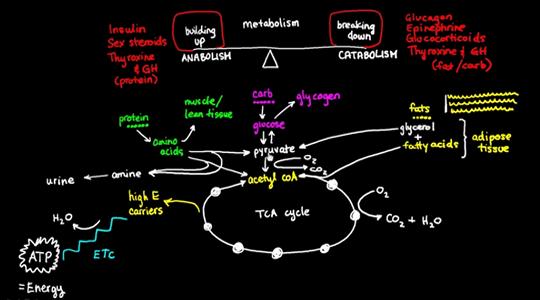 metabolism
Insulin
Sex steroids
Thyroxine
& GH
(protein)
building
up
ANABOLISM
breaking
down
CATABOLISM
Glucagon
Epinephrine
Glucocorticoids
Thyroxine & GH
(fat/carb)
protein
muscle/
lean tissue
amino
acids
amine
urine
carb
glycogen
glucose
pyruvate
O2
CO2
acetyl CoA
fats
glycerol
+
fatty acids
adipose
tissue
high E
carriers
TCA cycle
O2
CO2 + H2O
H2O
ETC
ATP
= Energy